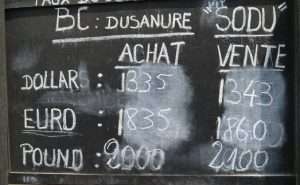 BC: DUSANURE "SODU"
ACHAT VENTE
DOLLARS : 1335 1343
EURO : 1835 1860
POUND : 2000 2100